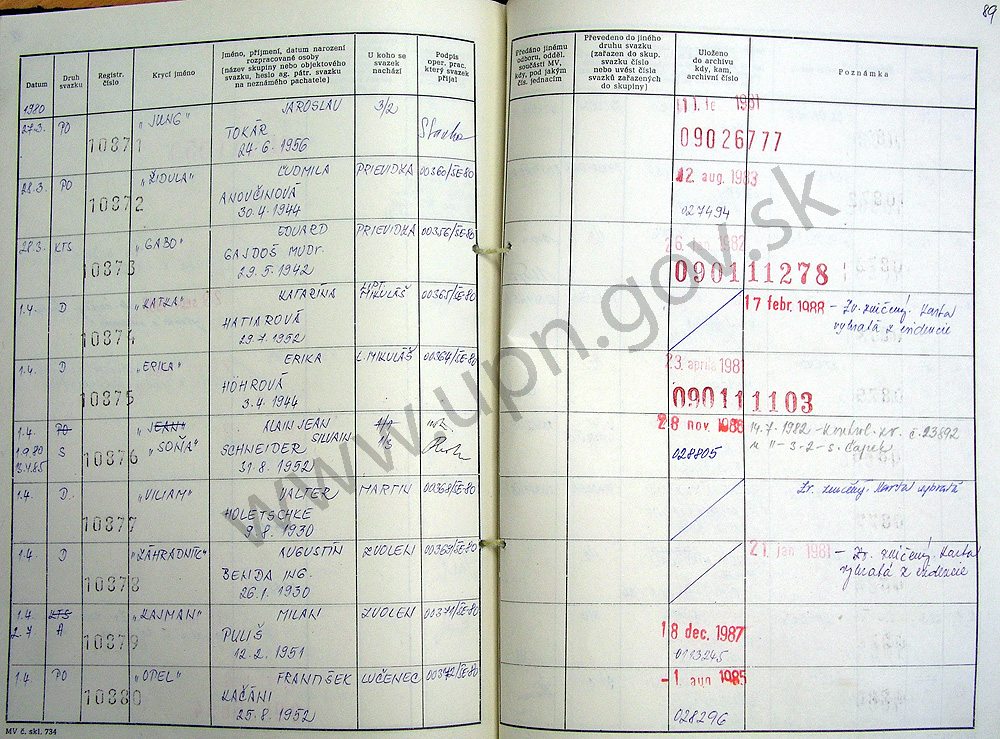 89
Datum
Druh svazku
Registr. číslo
Krycí jméno
Jméno, příjmení, datum narození
rozpracované osoby
(název skupiny nebo objektového
svazku, heslo ag. pátr. svazku
na neznámého pachatele)
U koho se
svazek
nachází
Podpis
oper. prac.
který svazek
přijal
Předáno jinému
odboru, odděl.
součásti MV,
kdy, pod jakým
čís. jednacím
Převedeno do jiného
druhu svazku
(zařazen do skup.
svazku číslo
nebo uvést čísla
svazků zařazených
do skupiny)
Uloženo
do archivu
kdy, kam,
archivní číslo
Poznámka
1980
27.3. PO 10871 "JUNG" JAROSLAV 3/2
TOKÁR
24.6.1956
1981
09026777
28.3. PO 10872 "ŽIDULA" ĽUDMILA PRIEVIDZA 00360/SE-80
ANOVČINOVÁ
30.4.1944
12. aug. 1983
027494
28.3. KTS 10873 "GABO" EDUARD PRIEVIDZA 00356/SE-80
GAJDOŠ MUDr.
29.5.1942
26. 1982
090111278
1.4. D 10874 "KATKA" KATARINA LIPT. MIKULÁŠ 00365/SE-80
HATIAROVÁ
29.7.1952
17 febr. 1988 – Zv. zničený. Karta
vybratá z evidencie
1.4. D 10875 "ERIKA" ERIKA L. MIKULÁŠ 00364/SE-80
HÖHROVÁ
3.4.1944
23. apríla 1981
090111103
1.4. PO 10876 "JEAN" ALAIN JEAN
1.9.80 S "SOŇA" SILVAIN
SCHNEIDER
31.8.1952
28 nov. 1988
028805
14.7.1982 - Kontrol. zv. č. 23692
u II-3-2-s. Čapek
1.4. D. 10877 "VILIAM" VALTER MARTIN 00368/SE-80
HOLETSCHKE
9.8.1930
Zv. zničený. Karta vybratá
1.4. D 10878 "ZÁHRADNÍK" AUGUSTÍN ZVOLEN 00369/SE-80
BENDA ING.
26.1.1930
21. jan 1981 – Zv. zničený. Karta
vybratá z evidencie
1.4. KTS 10879 "KAJMAN" MILAN ZVOLEN 00371/SE-80
2.7 A PULIŠ
12.2.1951
18 dec. 1987
0113245
1.4. PO 10880 "OPEL" FRANTIŠEK LUČENEC 00372/SE-80
KAČÁNI
25.8.1952
-1. aug 1985
028296
MV č. skl. 734
www.upn.gov.sk